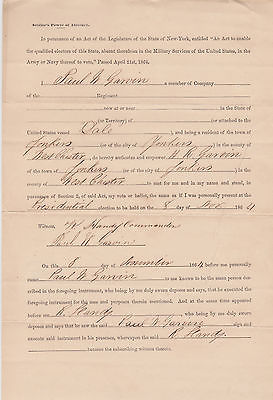 Soldier's Power of Attorney.
In pursuance of an Act of the Legislature of the State of New-York, entitled "An Act to enable
the qualified electors of this State, absent therefrom in the Military Services of the United States, in
the Army or Navy thereof to vote," Passed April 21st, 1864,
I Paul W Garvin a member of Company
of the Regiment
now at or near in the State of
(or Territory) (or attached to the
United States vessel Dale), and being a resident of the town of
Yonkers (or of the city of Yonkers) in the county of
West Chester do hereby authorize and empower
of the town of Yonkers (or of the city of Yonkers)
county of West Chester to vote for me and in my name and stead, in
pursuance of Section 2, of said Act, my vote or ballot at the
Presidential election to be held on the 8 day of Nov 186
Witness, Handy Commander
Paul W Garvin
On this day of November 1864 before me personally
Paul W Garvin to me known to be the same person described
in the foregoing instrument, who being by me duly sworn deposes and says, that he executed the
foregoing instrument for the uses and purposes therein mentioned. And at the same time appeared
before me R. Handy who being by me duly sworn
deposes and says that he saw the said Paul W Garvin sign
and execute said instrument in his presence, whereupon the said R. Handy
became the subscribing witness thereto.